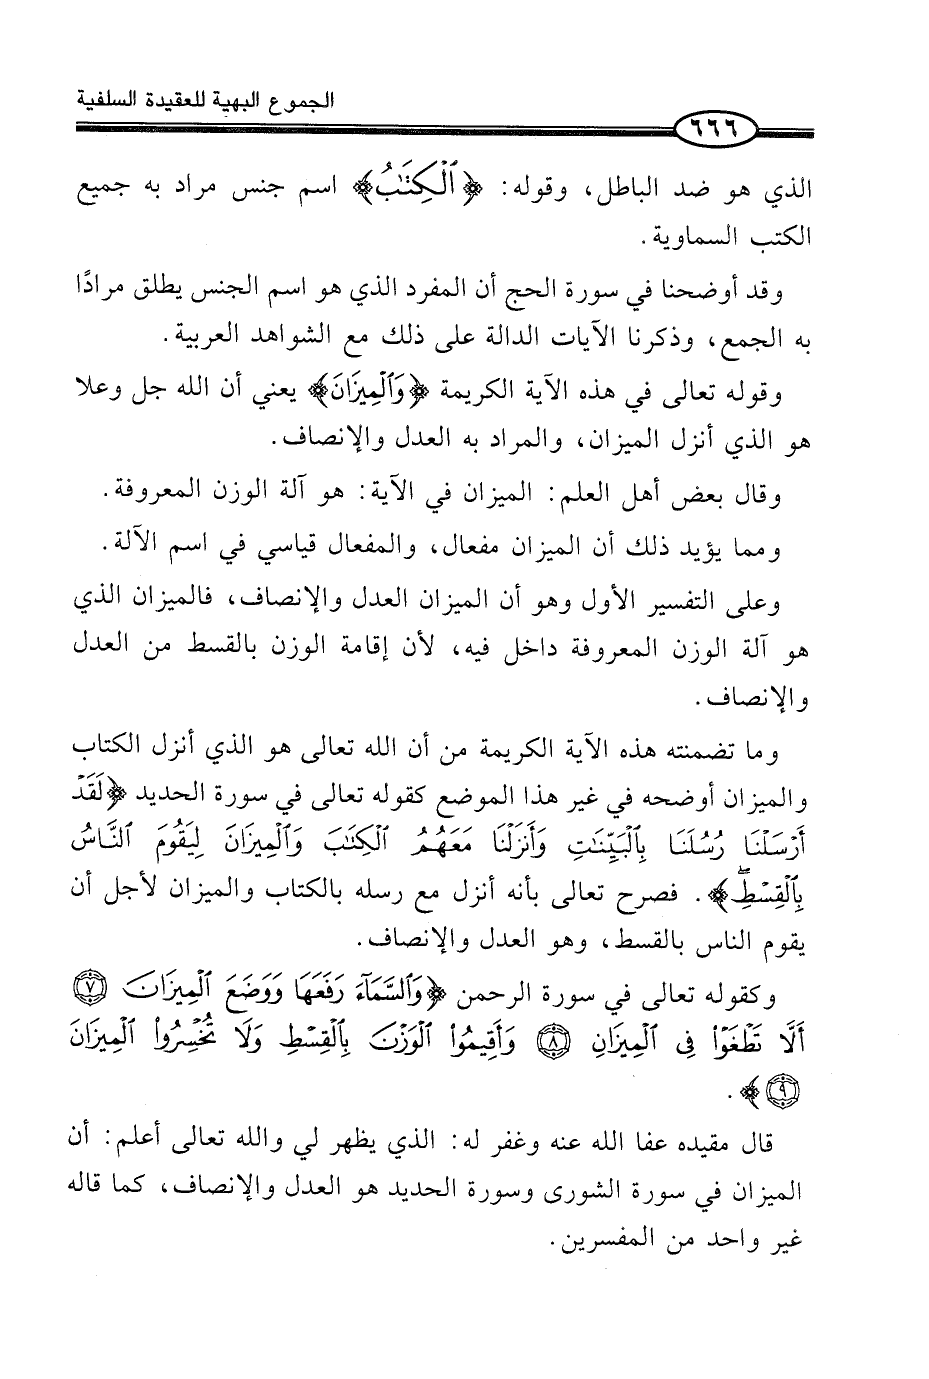 الجموع البهية للعقيدة السلفية
٦٦٦
الذي هو ضد الباطل، وقوله: ﴿ٱلۡكِتَٰبُ﴾ اسم جنس مراد به جميع
الكتب السماوية.
وقد أوضحنا في سورة الحج أن المفرد الذي هو اسم الجنس يطلق مرادًا
به الجمع، وذكرنا الآيات الدالة على ذلك مع الشواهد العربية.
وقوله تعالى في هذه الآية الكريمة ﴿وَٱلۡمِيزَانَ﴾ يعني أن الله جل وعلا
هو الذي أنزل الميزان، والمراد به العدل والإنصاف.
وقال بعض أهل العلم: الميزان في الآية: هو آلة الوزن المعروفة.
ومما يؤيد ذلك أن الميزان مفعال، والمفعال قياسي في اسم الآلة.
وعلى التفسير الأول وهو أن الميزان العدل والإنصاف، فالميزان الذي
هو آلة الوزن المعروفة داخل فيه، لأن إقامة الوزن بالقسط من العدل
والإنصاف.
وما تضمنته هذه الآية الكريمة من أن الله تعالى هو الذي أنزل الكتاب
والميزان أوضحه في غير هذا الموضع كقوله تعالى في سورة الحديد ﴿لَقَدۡ
أَرۡسَلۡنَا رُسُلَنَا بِٱلۡبَيِّنَٰتِ وَأَنزَلۡنَا مَعَهُمُ ٱلۡكِتَٰبَ وَٱلۡمِيزَانَ لِيَقُومَ ٱلنَّاسُ
بِٱلۡقِسۡطِۖ﴾. فصرح تعالى بأنه أنزل مع رسله بالكتاب والميزان لأجل أن
يقوم الناس بالقسط، وهو العدل والإنصاف.
وكقوله تعالى في سورة الرحمن ﴿وَٱلسَّمَآءَ رَفَعَهَا وَوَضَعَ ٱلۡمِيزَانَ ٧
أَلَّا تَطۡغَوۡاْ فِي ٱلۡمِيزَانِ ٨ وَأَقِيمُواْ ٱلۡوَزۡنَ بِٱلۡقِسۡطِ وَلَا تُخۡسِرُواْ ٱلۡمِيزَانَ
٩﴾.
قال مقيده عفا الله عنه وغفر له: الذي يظهر لي والله تعالى أعلم: أن
الميزان في سورة الشورى وسورة الحديد هو العدل والإنصاف، كما قاله
غير واحد من المفسرين.